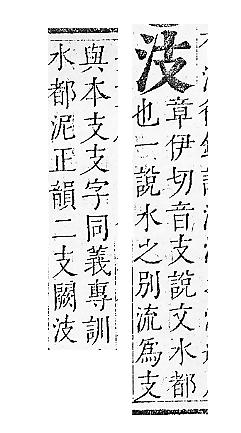 汥
章伊切音支說文水都
也一說水之別流爲支
與本支支字同義專訓
水都泥正韻二支闕汥